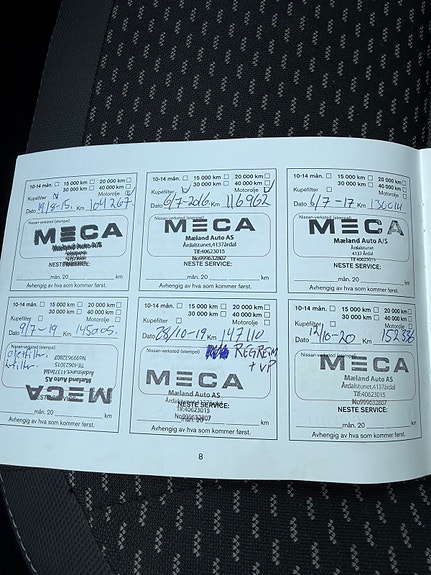 10-14 mån. 15 000 km 20 000 km
30 000 km 40 000 km
Kupéfilter Motorolje
Dato Km 104267
Nissan-verksted (stempel)
MECA
Mæland Auto A/S
NESTE SERVICE:
mån. 20 km
Avhengig av hva som kommer først.
10-14 mån. 15 000 km 20 000 km
30 000 km 40 000 km
Kupéfilter Motorolje
Dato 6/7-2016 Km 116962
Nissan-verksted (stempel)
MECA
Mæland Auto AS
Årdalstunet, 4137årdal
Tlf:40623015
No999632807
NESTE SERVICE:
mån. 20 km
Avhengig av hva som kommer først.
10-14 mån. 15 000 km 20 000 km
30 000 km 40 000 km
Kupéfilter Motorolje
Dato 6/7-17 Km
Nissan-verksted (stempel)
MECA
Mæland Auto A/S
Årdalstunet,4137årdal
Tlf:40623015
No999632807
NESTE SERVICE:
mån. 20 km
Avhengig av hva som kommer først.
10-14 mån. 15 000 km 20 000 km
30 000 km 40 000 km
Kupéfilter Motorolje
Dato 9/7-19 Km 145005
Nissan-verksted (stempel)
MECA
Mæland Auto AS
Årdalstunet,4137årdal
Tlf:40623015
No999632807
mån. 20 km
Avhengig av hva som kommer først.
10-14 mån. 15 000 km 20 000 km
30 000 km 40 000 km
Kupéfilter Motorolje
Dato 28/10-19 Km 147110
Nissan-verksted (stempel)
REGREIM
+ VP
MECA
Mæland Auto AS
Årdalstunet,4137årdal
Tlf:40623015
No999632807
NESTE SERVICE:
mån. 20 km
Avhengig av hva som kommer først.
10-14 mån. 15 000 km 20 000 km
30 000 km 40 000 km
Kupéfilter Motorolje
Dato 12/10-20 Km 152386
Nissan-verksted (stempel)
MECA
Mæland Auto AS
Årdalstunet,4137årdal
Tlf:40623015
No999632807
NESTE SERVICE:
mån. 20 km
Avhengig av hva som kommer først.
8